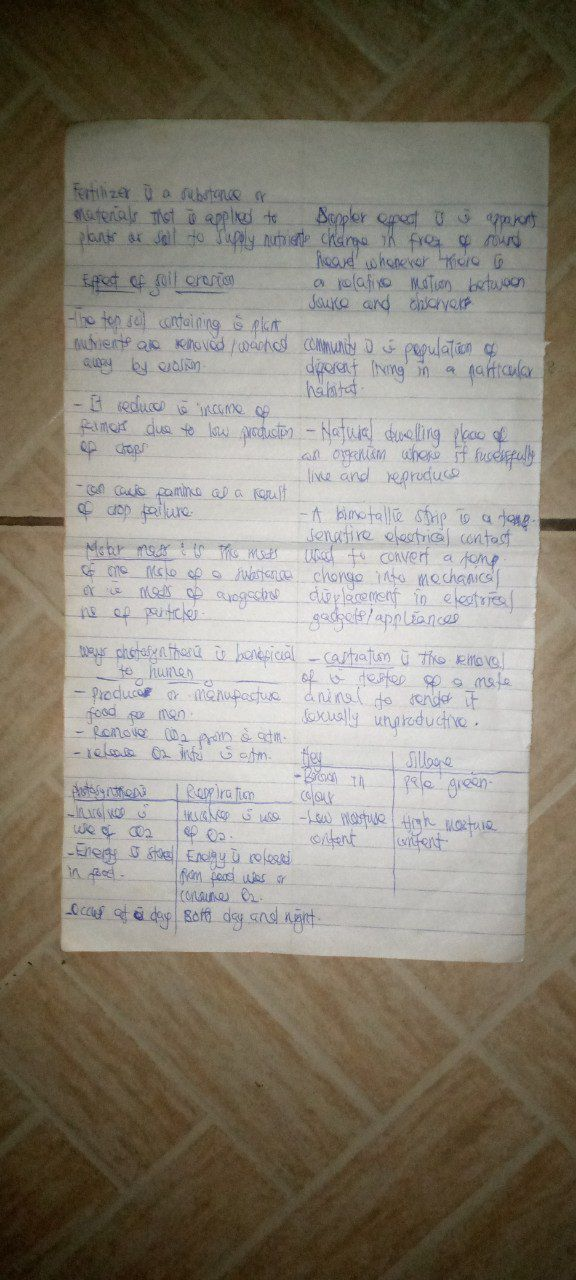 Fertilizer is a substance or
materials that is applied to
plants or soil to supply nutrients
Effect of soil erosion
- The top soil containing is plant
nutrients are removed/washed
away by erosion.
- It reduces is income of
farmers due to low production
of crops
- can cause famine as a result
of crop failure.
Molar mass : is the mass
of one mole of a substance
or is mass of avogadro
no of particles.
ways photosynthesis is beneficial
to human
- produces or manufacture
food for man.
- Removes CO2 from is atm.
- release O2 into is atm.
photosynthesis | Respiration
- Involves is | involves is use
use of CO2 | of O2.
- Energy is stored | Energy is released
in food. | from food uses or
consumes O2.
- Occurs at is day | Both day and night.
Doppler effect is is apparent
change in freq of sound
heard whenever there is
a relative motion between
source and observer
community is is population of
diferent living in a particular
habitat.
- Natural dwelling place of
an organism where it sucessfully
live and reproduce
- A bimetallic strip is a temp.
sensitive electrical contact
used to convert a temp
change into mechanical
displacement in electrical
gadgets/appliances
- castration is the removal
of is testes of a male
animal to render it
sexually unproductive.
Hay | Sillage
- Brown in | pale green.
colour
- Low moisture | High moisture
content | content.